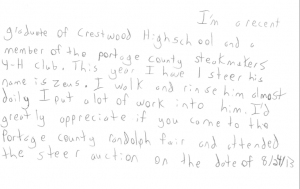 I'm a recent
graduate of Crestwood Highschool and a
member of the portage county steakmakers
4-H club. This year I have 1 steer his
name is Zeus. I walk and rinse him almost
daily I put alot of work into him. I'd
greatly appreciate if you came to the
Portage county randolph fair and attended
the steer auction on the date of 8/24/13